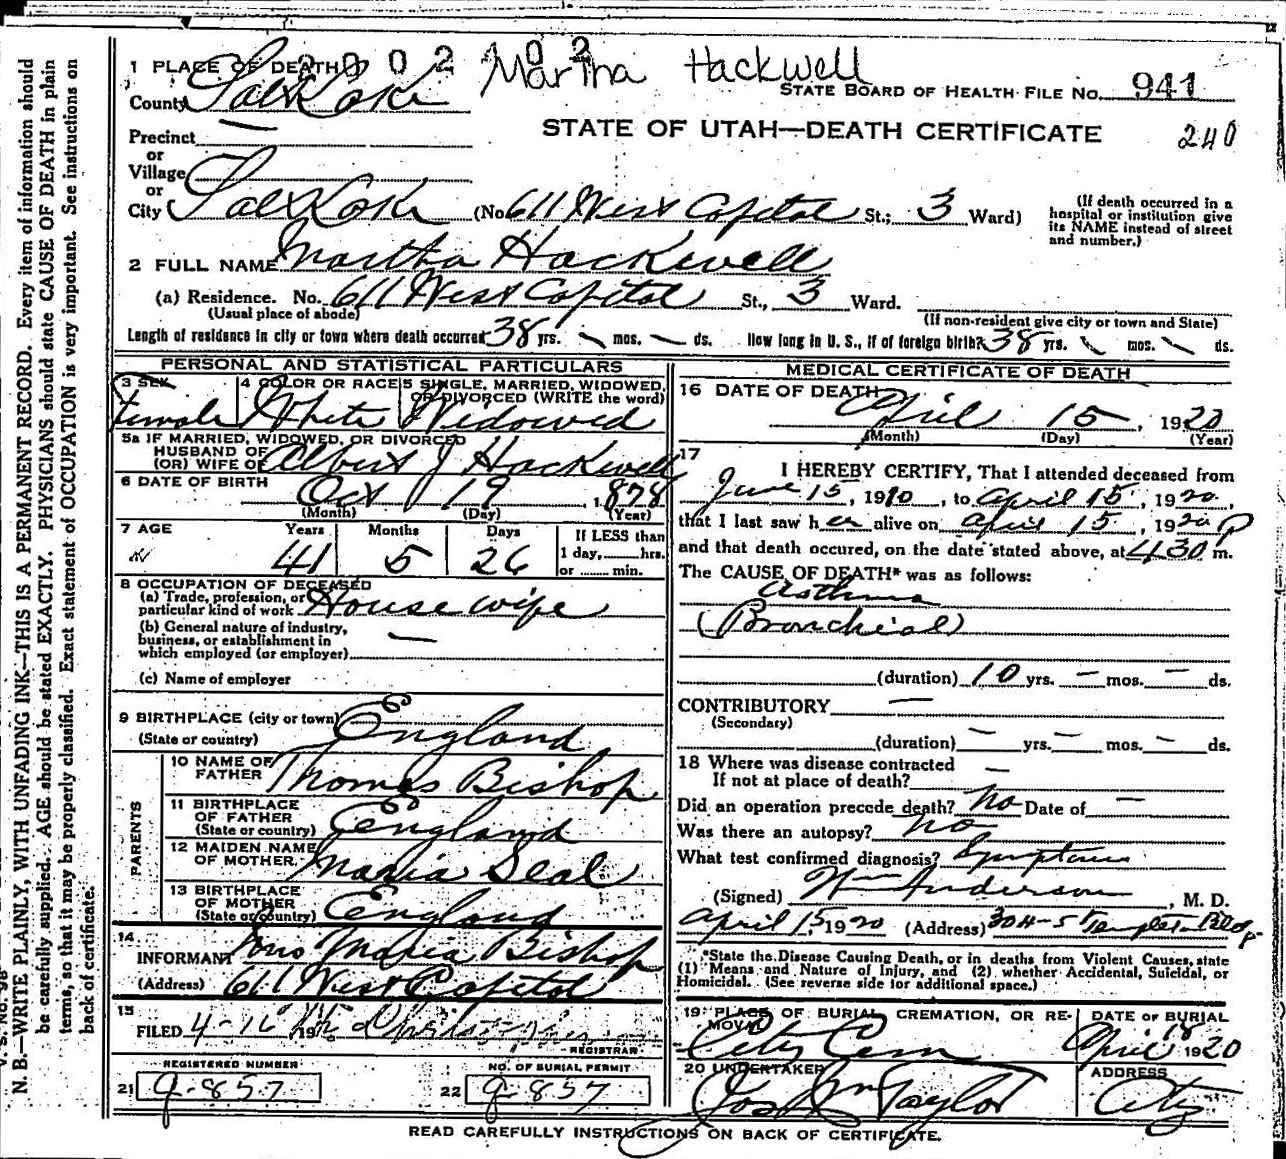 Martha Hackwell
1 PLACE OF DEATH
County Salt Lake
STATE BOARD OF HEALTH FILE No. 941
STATE OF UTAH—DEATH CERTIFICATE 240
Precinct
or
Village
or
City Salt Lake (No 611 West Capitol St.; 3 Ward)
(If death occurred in a hospital or institution give its NAME instead of street and number.)
2 FULL NAME Martha Hackwell
(a) Residence. No. 611 West Capitol St., 3 Ward.
(Usual place of abode) (If non-resident give city or town and State)
Length of residence in city or town where death occurred 38 yrs. mos. ds. How long in U. S., if of foreign birth? 38 yrs. mos. ds.
PERSONAL AND STATISTICAL PARTICULARS
3 SEX Female
4 COLOR OR RACE White
5 SINGLE, MARRIED, WIDOWED, OR DIVORCED (WRITE the word) Widowed
5a IF MARRIED, WIDOWED, OR DIVORCED
HUSBAND OF
(OR) WIFE OF Albert J Hackwell
6 DATE OF BIRTH Oct 19, 1878
(Month) (Day) (Year)
7 AGE Years Months Days If LESS than
41 5 26 1 day, hrs.
or min.
8 OCCUPATION OF DECEASED
(a) Trade, profession, or
particular kind of work House wife
(b) General nature of industry,
business, or establishment in
which employed (or employer) —
(c) Name of employer
9 BIRTHPLACE (city or town)
(State or country) England
PARENTS
10 NAME OF FATHER Thomas Bishop
11 BIRTHPLACE OF FATHER
(State or country) England
12 MAIDEN NAME OF MOTHER Maria Seal
13 BIRTHPLACE OF MOTHER
(State or country) England
14
INFORMANT Mrs Maria Bishop
(Address) 611 West Capitol
15
FILED 4-16 19
REGISTRAR
REGISTERED NUMBER NO. OF BURIAL PERMIT
21 g-857 22 g-857
MEDICAL CERTIFICATE OF DEATH
16 DATE OF DEATH
April 15, 1920
(Month) (Day) (Year)
17
I HEREBY CERTIFY, That I attended deceased from
June 15, 1910, to April 15, 1920,
that I last saw her alive on April 15, 1920
and that death occured, on the date stated above, at 430 P m.
The CAUSE OF DEATH* was as follows:
Asthma
(Bronchial)
(duration) 10 yrs. — mos. — ds.
CONTRIBUTORY —
(Secondary)
(duration) — yrs. — mos. — ds.
18 Where was disease contracted
If not at place of death? —
Did an operation precede death? No Date of —
Was there an autopsy? no
What test confirmed diagnosis? Symptoms
(Signed) Wm Anderson, M. D.
April 15, 1920 (Address) 304-5 Templeton Bldg
*State the Disease Causing Death, or in deaths from Violent Causes, state
(1) Means and Nature of Injury, and (2) whether Accidental, Suicidal, or
Homicidal. (See reverse side for additional space.)
19 PLACE OF BURIAL, CREMATION, OR REMOVAL City Cem
DATE OF BURIAL April 18 1920
20 UNDERTAKER Jos Wm Taylor
ADDRESS City
READ CAREFULLY INSTRUCTIONS ON BACK OF CERTIFICATE.
V. S. No. 98
N. B.—WRITE PLAINLY, WITH UNFADING INK—THIS IS A PERMANENT RECORD. Every item of information should
be carefully supplied. AGE should be stated EXACTLY. PHYSICIANS should state CAUSE OF DEATH in plain
terms, so that it may be properly classified. Exact statement of OCCUPATION is very important. See instructions on
back of certificate.